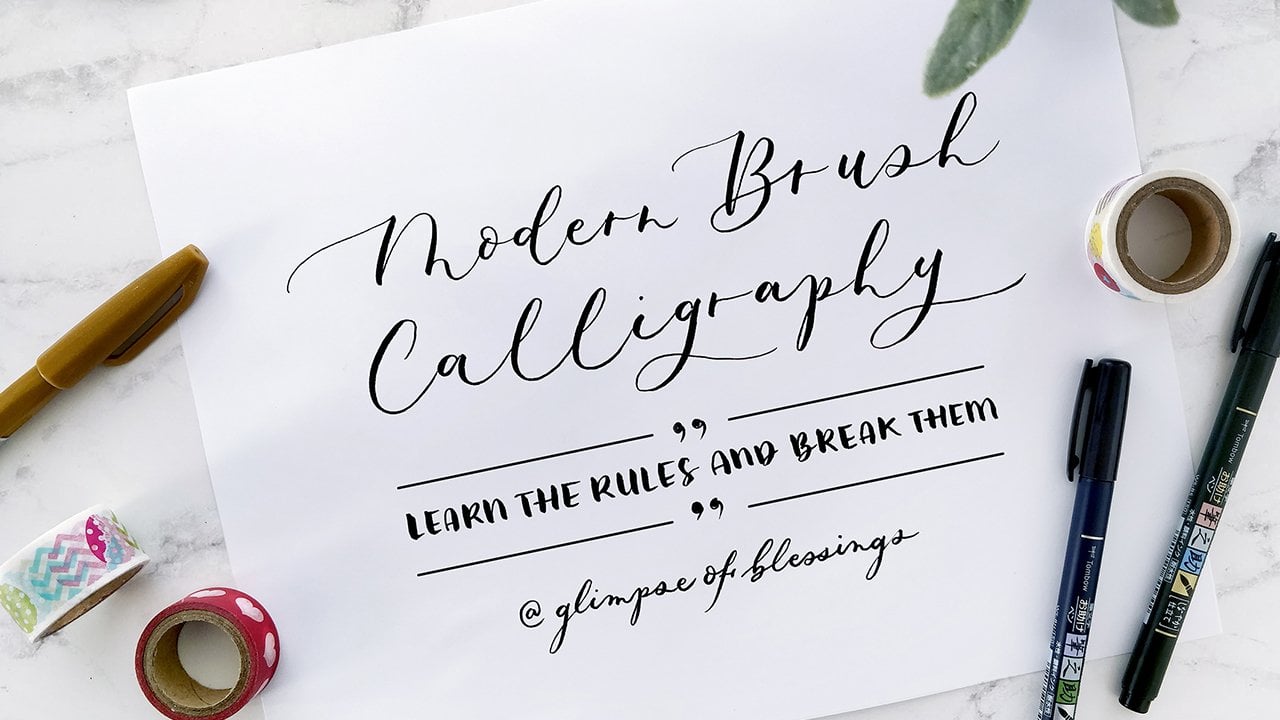 Modern Brush
Calligraphy
”
LEARN THE RULES AND BREAK THEM
”
@ glimpse of blessings
Tombow
Tombow